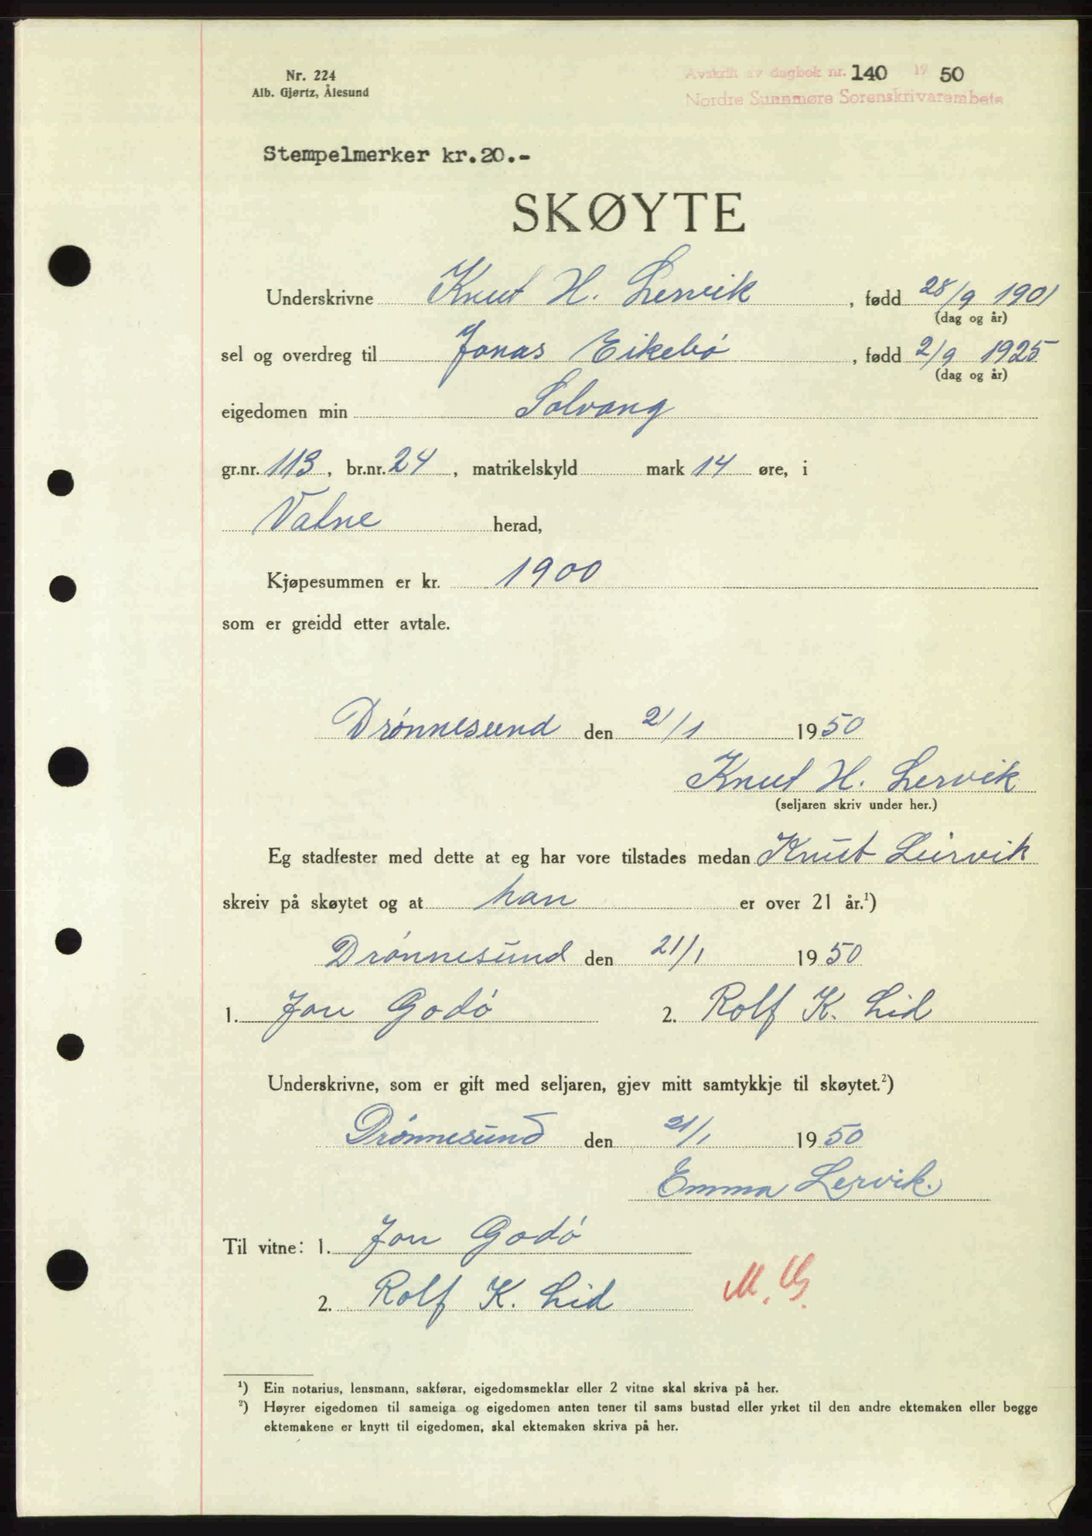 Nr. 224
Alb. Gjertz, Ålesund
Avskrift av dagbok nr. 140 19 50
Nordre Sunnmøre Sorenskrivarembete
Stempelmerker kr.20.-
SKØYTE
Underskrivne Knut H. Lervik, fødd 28/9 1901
(dag og år)
sel og overdreg til Jonas Eikebø, fødd 2/9 1925
(dag og år)
eigedomen min Solvang
gr.nr. 113, br.nr. 24, matrikelskyld mark 14 øre, i
Vatne herad,
Kjøpesummen er kr. 1900
som er greidd etter avtale.
Drønnesund den 21/1 1950
Knut H. Lervik
(seljaren skriv under her.)
Eg stadfester med dette at eg har vore tilstades medan Knut Leirvik
skreiv på skøytet og at han er over 21 år.¹)
Drønnesund den 21/1 1950
1. Jon Godø 2. Rolf K. Lid
Underskrivne, som er gift med seljaren, gjev mitt samtykkje til skøytet.²)
Drønnesund den 21/1 1950
Emma Lervik.
Til vitne: 1. Jon Godø
2. Rolf K. Lid
M. G.
¹) Ein notarius, lensmann, sakførar, eigedomsmeklar eller 2 vitne skal skriva på her.
²) Høyrer eigedomen til sameiga og eigedomen anten tener til sams bustad eller yrket til den andre ektemaken eller begge
ektemakene er knytt til eigedomen, skal ektemaken skriva på her.